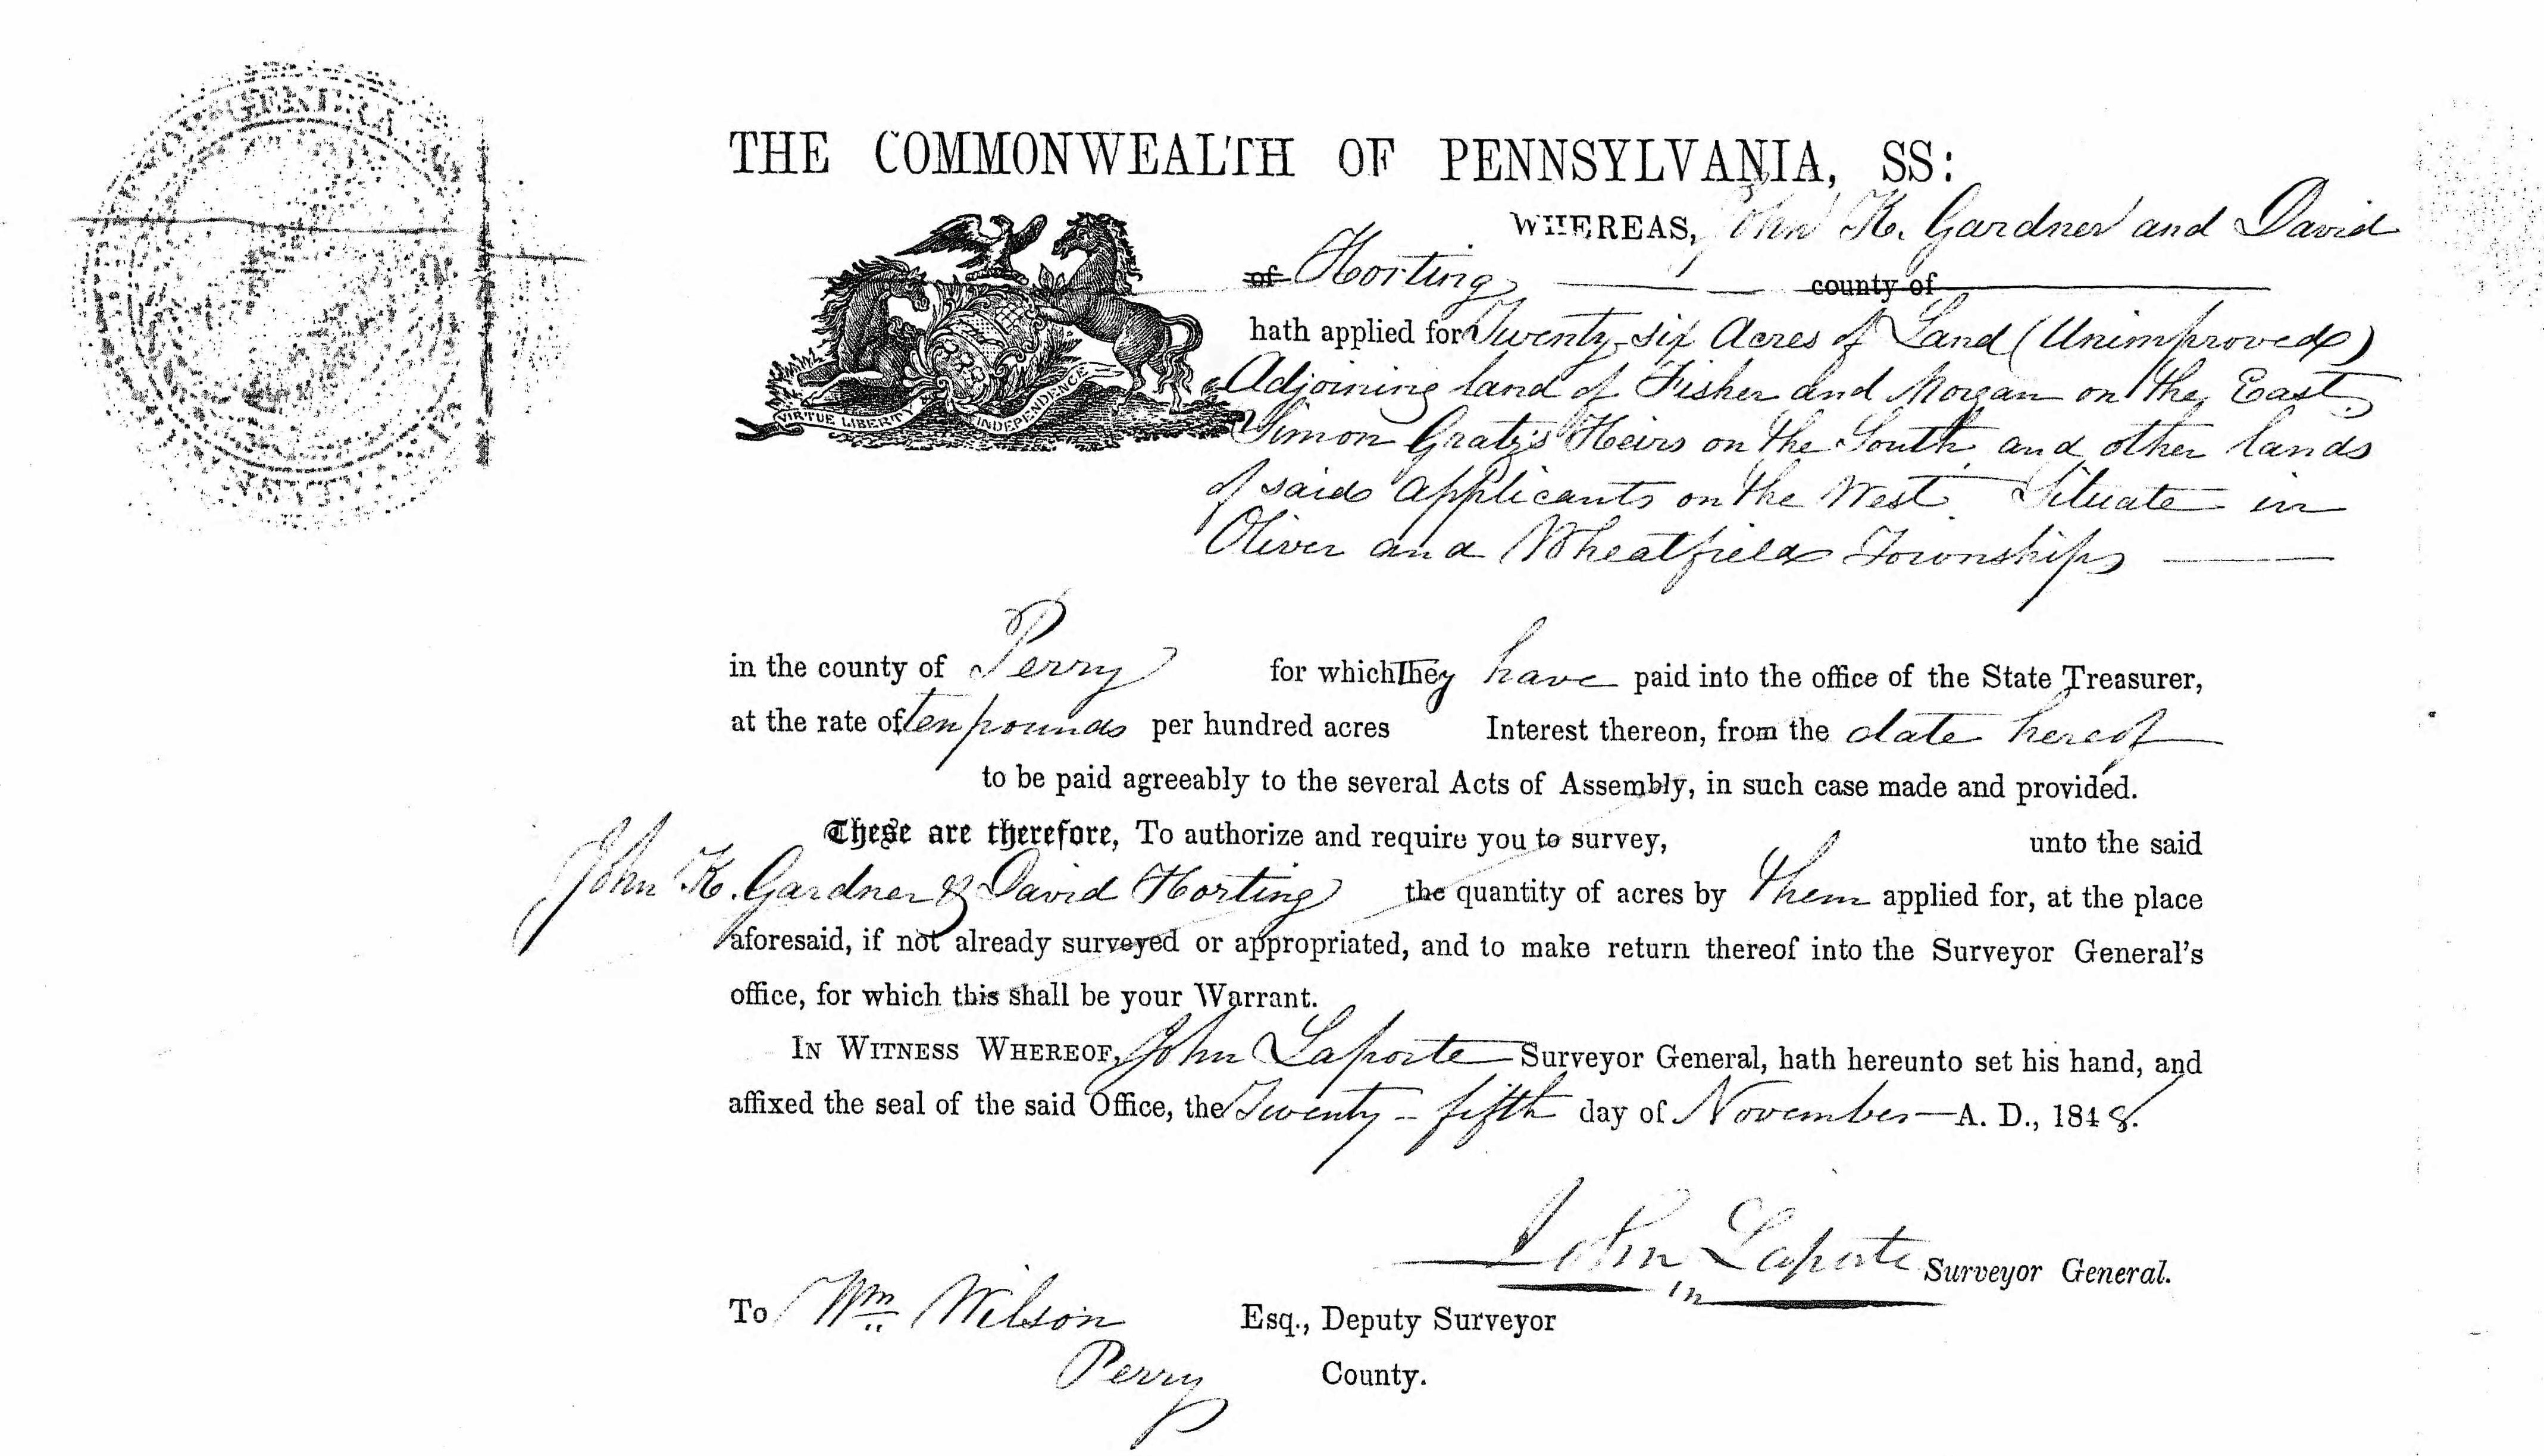 THE COMMONWEALTH OF PENNSYLVANIA, SS:
WHEREAS, John K. Gardner and David
of Horting county of
hath applied for Twenty-six Acres of Land (Unimproved)
Adjoining land of Fisher and Morgan on the East
Simon Gratz's Heirs on the South and other lands
of said applicants on the West. Situate in
Oliver and Wheatfield Townships
VIRTUE LIBERTY INDEPENDENCE
in the county of Perry for which They have paid into the office of the State Treasurer,
at the rate of ten pounds per hundred acres Interest thereon, from the date hereof
to be paid agreeably to the several Acts of Assembly, in such case made and provided.
These are therefore, To authorize and require you to survey, unto the said
John K. Gardner & David Horting the quantity of acres by them applied for, at the place
aforesaid, if not already surveyed or appropriated, and to make return thereof into the Surveyor General's
office, for which this shall be your Warrant.
IN WITNESS WHEREOF, John Laporte Surveyor General, hath hereunto set his hand, and
affixed the seal of the said Office, the Twenty-fifth day of November A. D., 1848.
John Laporte Surveyor General.
To Wm Wilson Esq., Deputy Surveyor
Perry County.